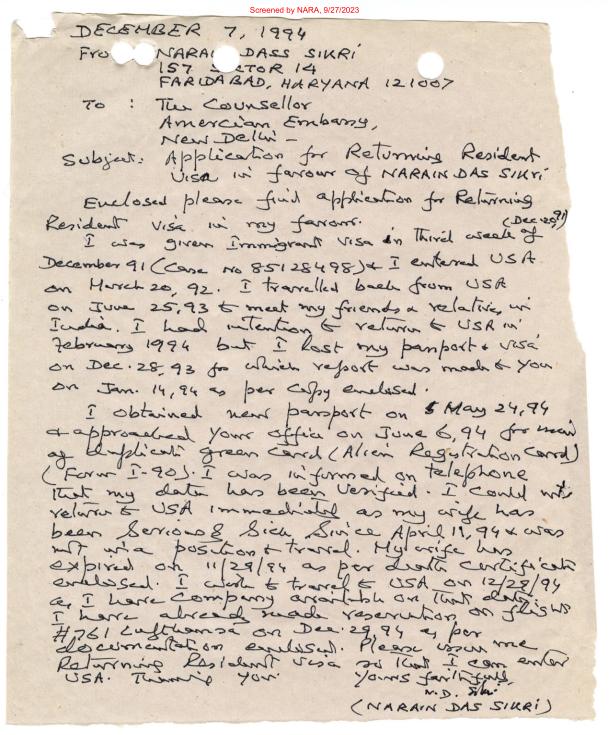 Screened by NARA, 9/27/2023
DECEMBER 7, 1994
Fro NARAI DASS SIKRI
157 S CTOR 14
FARIDABAD, HARYANA 121007
To : The Counsellor
Amercian Embassy,
New Delhi -
Subject: Application for Returning Resident
Visa in favour of NARAIN DAS SIKRI
Enclosed please find application for Returning
Resident visa in my favour. (Dec-20, 91)
I was given Immigrant visa in Third week of
December 91 (Case No 85128498) & I entered USA
on March 20, 92. I travelled back from USA
on June 25, 93 to meet my friends & relatives in
India. I had intention to return to USA in
February 1994 but I lost my passport & visa
on Dec. 28, 93 for which report was made to you
on Jan. 14, 94 as per copy enclosed.
I obtained new passport on May 24, 94
& approached your office on June 6, 94 for
of duplicate green card (Alien Registration Card)
(Form I-90). I was informed on telephone
that my data has been verified. I could not
return to USA immediately as my wife has
been Serious & Sick, Since April 11, 94 & was
not in a position to travel. My wife has
expired on 11/29/94 as per death certificate
enclosed. I wish to travel to USA on 12/29/94
as I have company available on that date.
I have already made reservation on flight
#761 Lufthansa on Dec. 29, 94 as per
documentation enclosed. Please issue me
Returning Resident Visa so that I can enter
USA. Thanking you. Yours faithfully,
N.D. Sikri
(NARAIN DAS SIKRI)